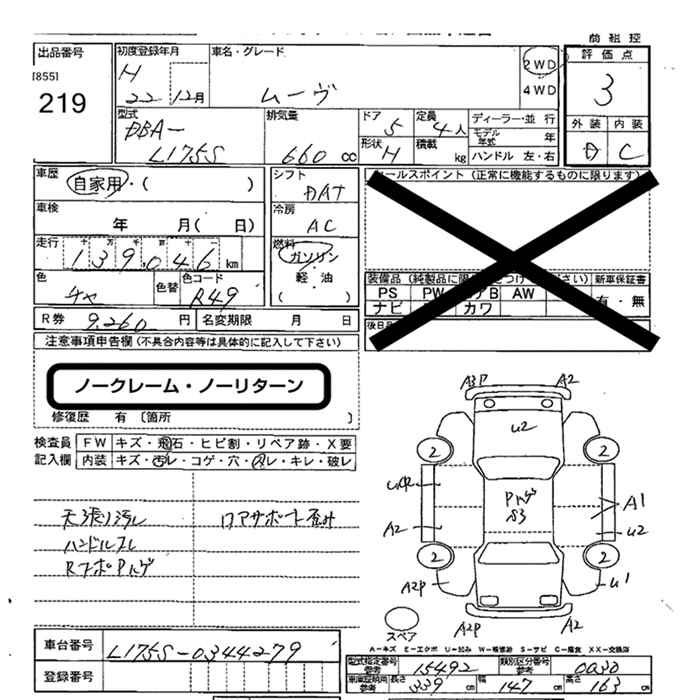 商組控
出品番号 [855] 219
初度登録年月 H 22 12月
車名・グレード ムーヴ
2WD
4WD
評価点 3
外装 内装 C
型式 DBA- L175S
排気量 660 cc
ドア 5
形状 H
定員 4人
積載 kg
ディーラー・並行
モデル年式 年
ハンドル 左・右
車歴 自家用・( )
車検 年 月( 日)
走行 十万千百十一 139,046 km
色
色替
色コード R49
シフト DAT
冷房 AC
燃料 ガソリン 軽油 ( )
セールスポイント (正常に機能するものに限ります)
装備品 新車保証書
PS PW AW 有・無
ナビ カワ
R券 9,260 円
名変期限 月 日
注意事項申告欄 (不具合内容等は具体的に記入して下さい)
ノークレーム・ノーリターン
修復歴 有 〔箇所 〕
検査員 FW キズ・飛石・ヒビ割・リペア跡・X要
記入欄 内装 キズ・汚レ・コゲ・穴・スレ・キレ・破レ
天張り汚レ
ハンドルスレ
A3P A2
U2
2 2
A1
A2 U2
2 2
A2P U1
A2P A2
スペア
車台番号 L175S-0344279
登録番号
A-キズ E-エクボ U-凹み W-補修跡 S-サビ C-腐食 XX-交換済
型式指定番号 参考 15492
類別区分番号 参考 0030
車庫証明用 参考 長さ 339 幅 147 高さ 163